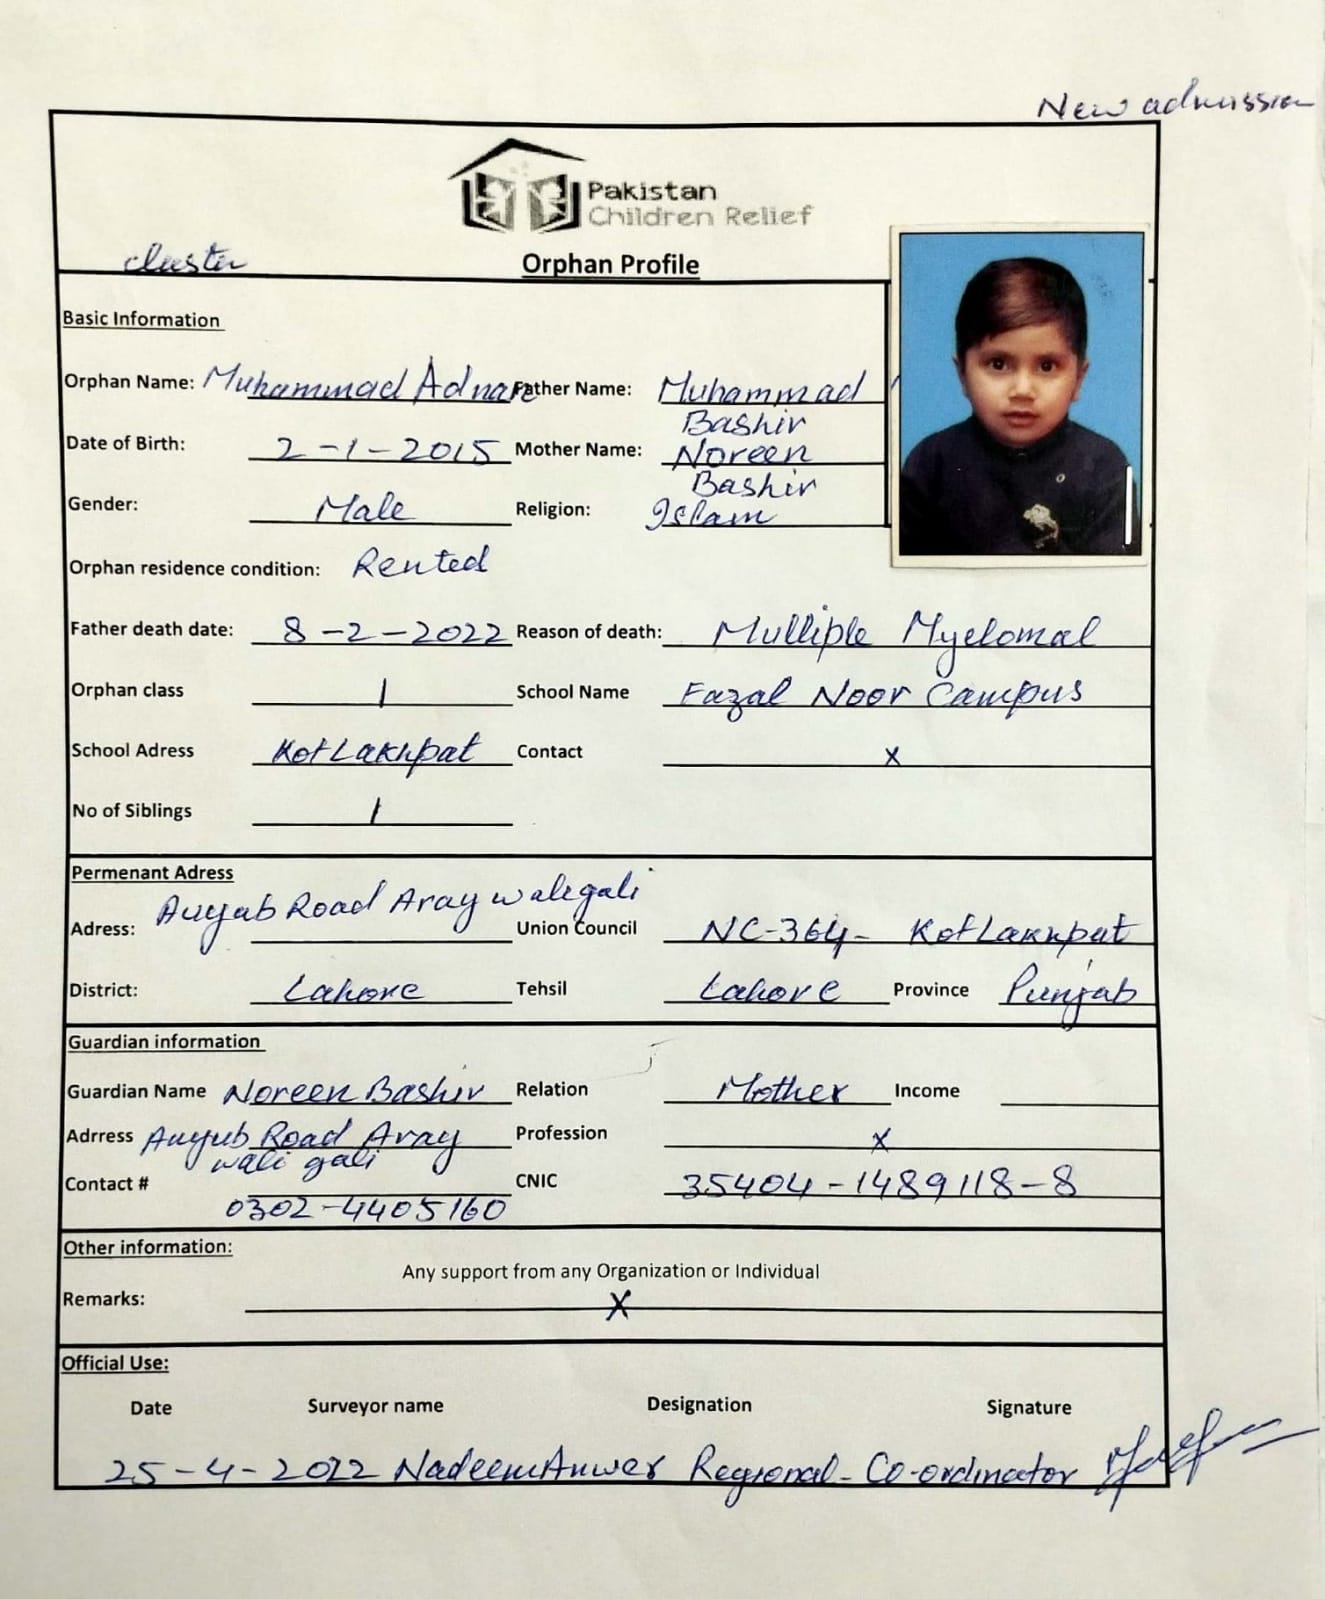 New admission
Pakistan
Children Relief
cluster
Orphan Profile
Basic Information
Orphan Name: Muhammad Adnan Father Name: Muhammad Bashir
Date of Birth: 2-1-2015 Mother Name: Noreen Bashir
Gender: Male Religion: Islam
Orphan residence condition: Rented
Father death date: 8-2-2022 Reason of death: Mulliple Myelomal
Orphan class 1 School Name Fazal Noor Campus
School Adress Kot Lakhpat Contact x
No of Siblings 1
Permenant Adress
Adress: Auyab Road Aray wali gali Union Council NC-364- Kot Lakhpat
District: Lahore Tehsil Lahore Province Punjab
Guardian information
Guardian Name Noreen Bashir Relation Mother Income
Adrress Auyub Road Aray wali gali Profession x
Contact # 0302-4405160 CNIC 35404-1489118-8
Other information:
Any support from any Organization or Individual
Remarks: X
Official Use:
Date Surveyor name Designation Signature
25-4-2022 Nadeem Anwer Regional Co-ordinator